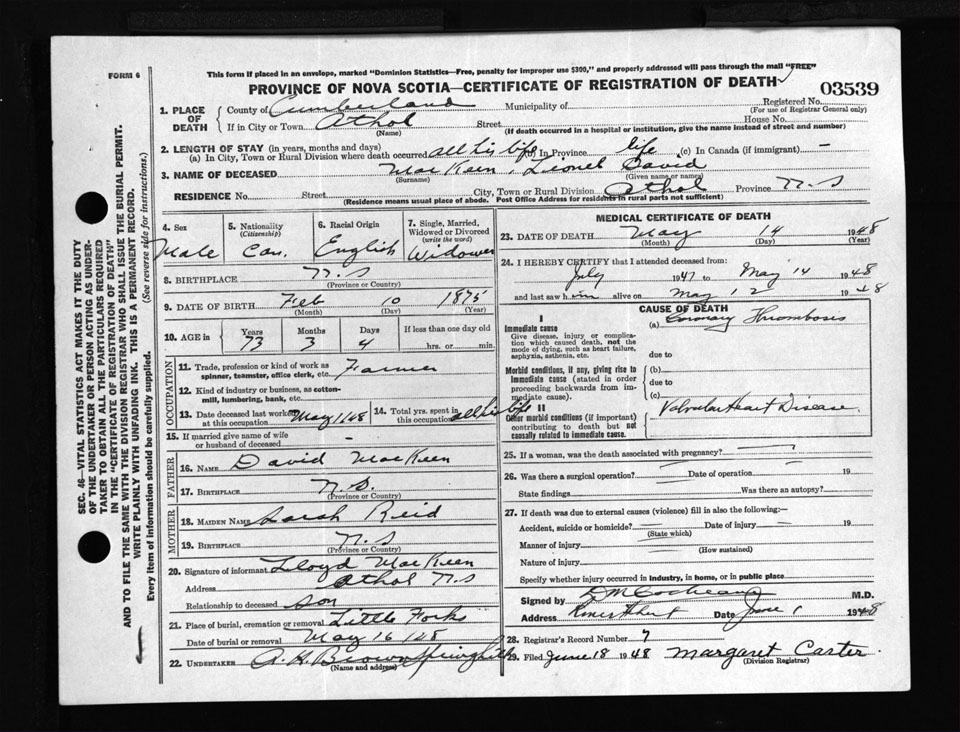 FORM 6
This form if placed in an envelope, marked "Dominion Statistics—Free, penalty for improper use $300," and properly addressed will pass through the mail "FREE"
PROVINCE OF NOVA SCOTIA—CERTIFICATE OF REGISTRATION OF DEATH
03539
1. PLACE OF DEATH
County of Cumberland Municipality of Registered No.
(For use of Registrar General only)
If in City or Town Athol Street House No.
(Name) (If death occurred in a hospital or institution, give the name instead of street and number)
2. LENGTH OF STAY (in years, months and days)
(a) In City, Town or Rural Division where death occurred all his life (b) In Province life (c) In Canada (if immigrant) –
3. NAME OF DECEASED MacKeen, Lionel David
(Surname) (Given name or names)
RESIDENCE No. Street City, Town or Rural Division Athol Province N.S
(Residence means usual place of abode. Post Office Address for residents in rural parts not sufficient)
4. Sex Male
5. Nationality (Citizenship) Can.
6. Racial Origin English
7. Single, Married, Widowed or Divorced (write the word) Widower
8. BIRTHPLACE N.S
(Province or Country)
9. DATE OF BIRTH Feb 10 1875
(Month) (Day) (Year)
10. AGE in Years 73 Months 3 Days 4 If less than one day old
hrs. or min.
OCCUPATION
11. Trade, profession or kind of work as spinner, teamster, office clerk, etc. Farmer
12. Kind of industry or business, as cotton-mill, lumbering, bank, etc.
13. Date deceased last worked at this occupation May 1/48
14. Total yrs. spent in this occupation all his life
15. If married give name of wife or husband of deceased –
FATHER
16. NAME David MacKeen
17. BIRTHPLACE N.S.
(Province or Country)
MOTHER
18. MAIDEN NAME Sarah Reid
19. BIRTHPLACE N.S
(Province or Country)
20. Signature of informant Lloyd MacKeen
Address Athol N.S
Relationship to deceased son
21. Place of burial, cremation or removal Little Forks
Date of burial or removal May 16/48
22. UNDERTAKER A. H. Brown Springhill
(Name and address)
MEDICAL CERTIFICATE OF DEATH
23. DATE OF DEATH May 14 1948
(Month) (Day) (Year)
24. I HEREBY CERTIFY that I attended deceased from:
July 1947 to May 14 1948
and last saw him alive on May 12 1948
CAUSE OF DEATH
I
Immediate cause
Give disease, injury or complication which caused death, not the mode of dying, such as heart failure, asphyxia, asthenia, etc.
(a) Coronary Thrombosis
due to
Morbid conditions, if any, giving rise to immediate cause (stated in order proceeding backwards from immediate cause).
(b)
due to
(c)
II
Other morbid conditions (if important) contributing to death but not causally related to immediate cause.
Valvular Heart Disease
25. If a woman, was the death associated with pregnancy?
26. Was there a surgical operation? Date of operation 19
State findings Was there an autopsy?
27. If death was due to external causes (violence) fill in also the following:—
Accident, suicide or homicide? Date of injury 19
(State which)
Manner of injury
(How sustained)
Nature of injury
Specify whether injury occurred in industry, in home, or in public place
Signed by M.D.
Address Date June 1 1948
28. Registrar's Record Number 7
29. Filed June 18 1948 Margaret Carter
(Division Registrar)
SEC. 46—VITAL STATISTICS ACT MAKES IT THE DUTY
OF THE UNDERTAKER OR PERSON ACTING AS UNDER-
TAKER TO OBTAIN ALL THE PARTICULARS REQUIRED
IN THE "CERTIFICATE OF REGISTRATION OF DEATH"
AND TO FILE THE SAME WITH THE DIVISION REGISTRAR WHO SHALL ISSUE THE BURIAL PERMIT.
WRITE PLAINLY WITH UNFADING INK. THIS IS A PERMANENT RECORD.
Every item of information should be carefully supplied. (See reverse side for instructions.)